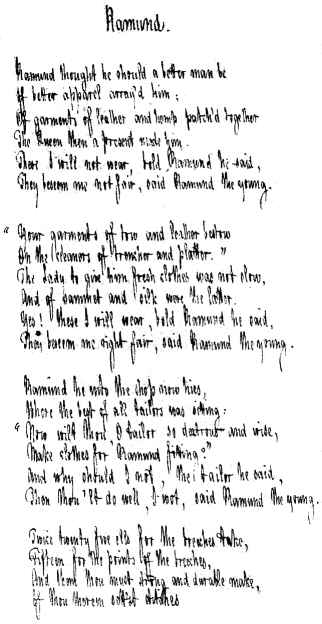 Ramund.
Ramund thought he should a better man be
If better apparel array'd him;
Of garments of leather and hemp patch'd together
The Queen then a present made him.
These I will not wear, bold Ramund he said,
They beseem me not fair, said Ramund the young.
"Your garments of tow and leather bestow
On the cleaners of trencher and platter."
The Lady to give him fresh clothes was not slow,
And of samnet and silk were the latter.
Yes! these I will wear, bold Ramund he said,
They beseem me right fair, said Ramund the young.
Ramund he unto the shop now hies,
Where the best of all tailors was sitting:
"Now wilt thou, O tailor so dextrous and wise,
Make clothes for Ramund fitting?"
And why should I not, the tailor he said,
Then thou'lt do well, I wot, said Ramund the young.
Twice twenty five ells for the breeches take,
Fifteen for the points of the breeches,
And them thou must strong and durable make,
If thou therein sett'st stitches